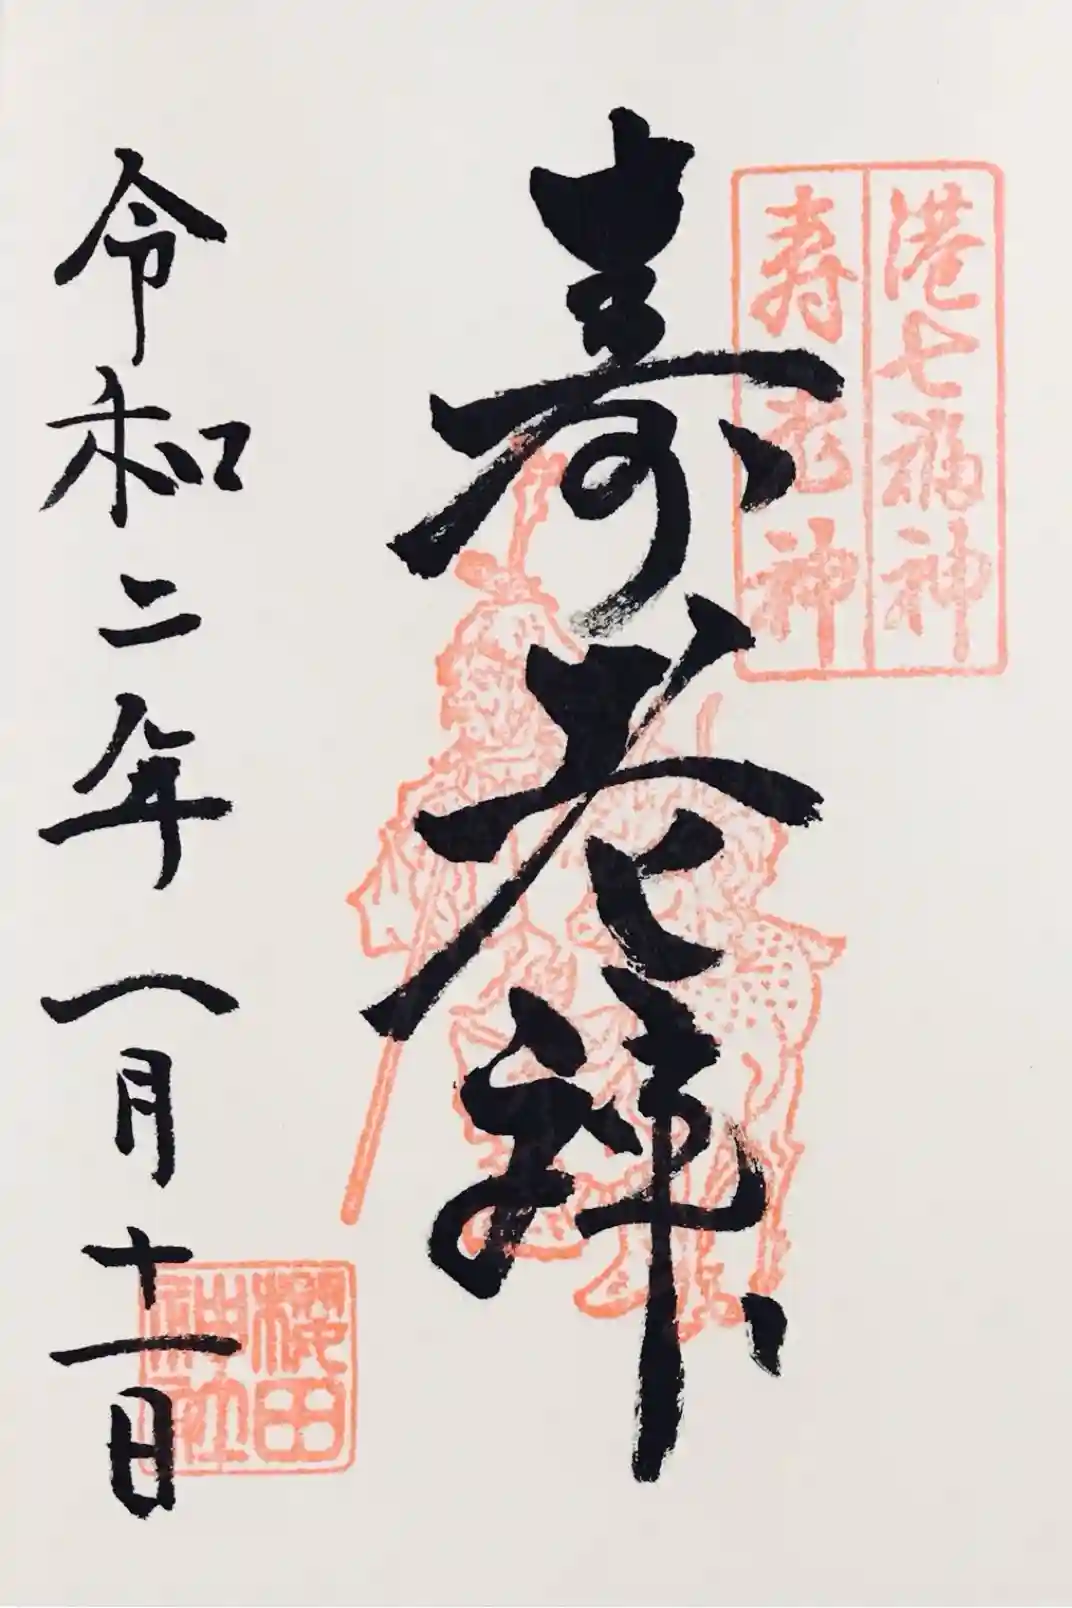 港七福神
寿老神
寿老神
令和二年一月十一日
櫻田
神社